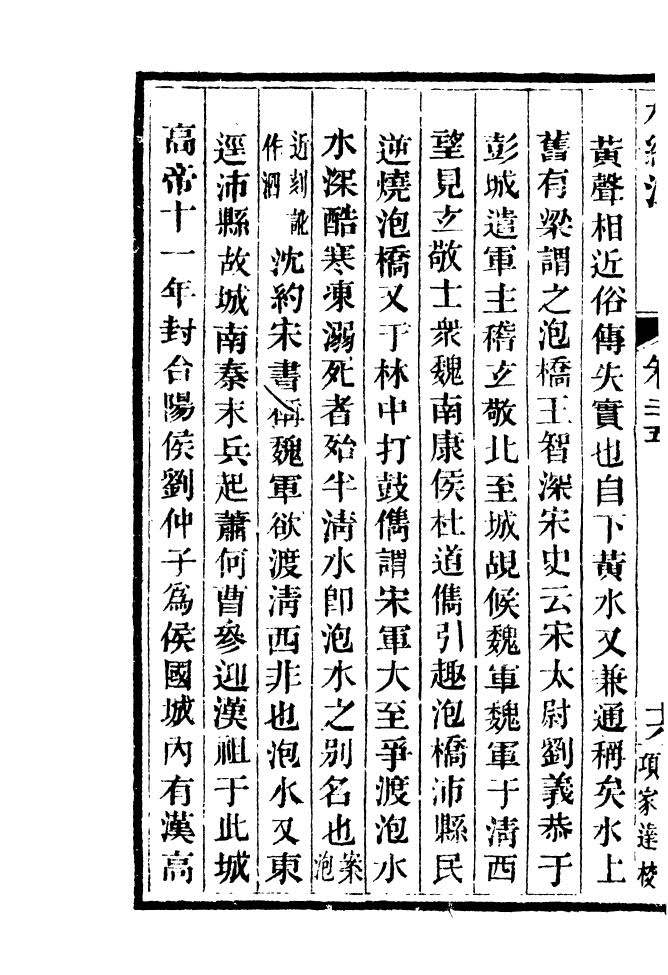 水經注 卷二五 十六 項家達校
黃聲相近俗傳失實也自下黃水又兼通稱矣水上
舊有梁謂之泡橋王智深宋史云宋太尉劉義恭于
彭城遣軍主稽玄敬北至城覘候魏軍魏軍于清西
望見玄敬士眾魏南康侯杜道儁引趣泡橋沛縣民
逆燒泡橋又于林中打鼓儁謂宋軍大至爭渡泡水
水深酷寒凍溺死者殆半清水即泡水之別名也案泡
近刻訛作泗沈約宋書稱魏軍欲渡清西非也泡水又東
逕沛縣故城南秦末兵起蕭何曹參迎漢祖于此城
高帝十一年封合陽侯劉仲子為侯國城內有漢高